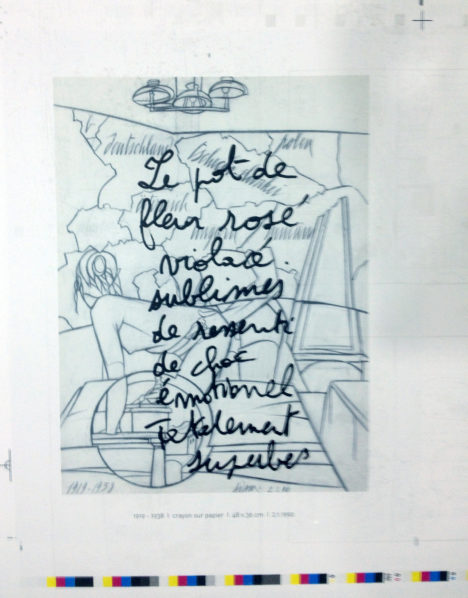 Deutschland
Polen
Le pot de
fleur rosé
violacé
sublimes
de ressenti
de choc
émotionel
superbes
1919-1938
1919 - 1938 | crayon sur papier | 48 x 36 cm |